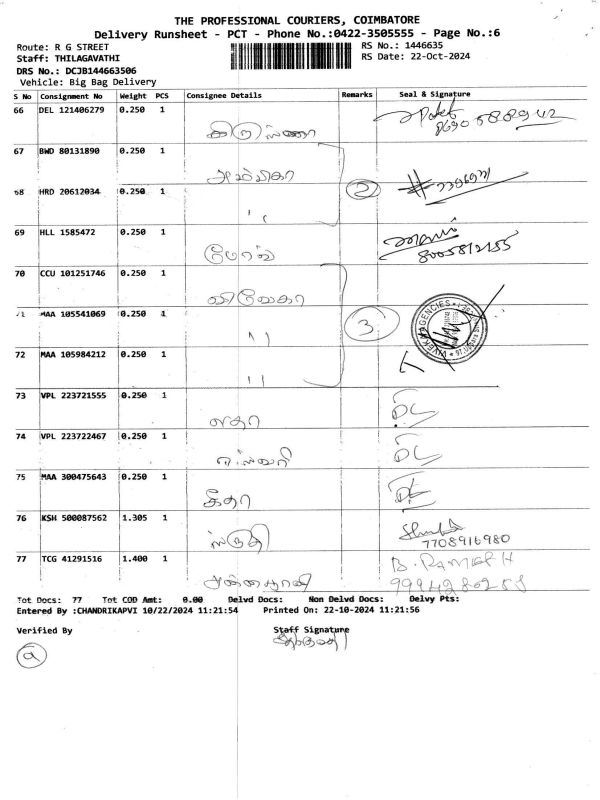 THE PROFESSIONAL COURIERS, COIMBATORE
Delivery Runsheet - PCT - Phone No.:0422-3505555 - Page No.:6
Route: R G STREET
RS No.: 1446635
Staff: THILAGAVATHI
RS Date: 22-Oct-2024
DRS No.: DCJB144663506
Vehicle: Big Bag Delivery
S No Consignment No Weight PCS Consignee Details Remarks Seal & Signature
66 DEL 121406279 0.250 1
67 BWD 80131890 0.250 1 அம்பிகா
68 HRD 20612034 0.250 1 " 2
69 HLL 1585472 0.250 1
8005812155
70 CCU 101251746 0.250 1 விவேகா
71 MAA 105541069 0.250 1 " 3
72 MAA 105984212 0.250 1 "
73 VPL 223721555 0.250 1
74 VPL 223722467 0.250 1
75 MAA 300475643 0.250 1 கீதா
76 KSH 500087562 1.305 1 ஸ்ருதி
7708916980
77 TCG 41291516 1.400 1
B. RAMESH
Tot Docs: 77 Tot COD Amt: 0.00 Delvd Docs: Non Delvd Docs: Delvy Pts:
Entered By :CHANDRIKAPVI 10/22/2024 11:21:54 Printed On: 22-10-2024 11:21:56
Verified By Staff Signature
a